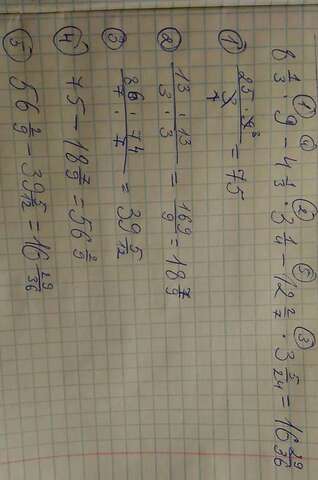 ① ④ ② ⑤ ③
8 1/3 · 9 − 4 1/3 · 3 1/4 − 12 2/7 · 3 5/24 = 16 29/36
① 25 · 9 3 / 3 1 = 75
② 13 · 13 / 3 · 3 = 169/9 = 18 7/9
③ = 39 5/12
④ 75 − 18 7/9 = 56 2/9
⑤ 56 2/9 − 39 5/12 = 16 29/36